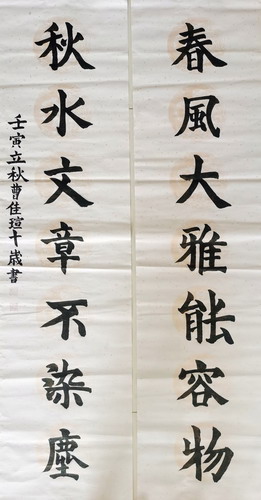 春風大雅能容物
秋水文章不染塵
壬寅立秋曹佳瑄十歲書